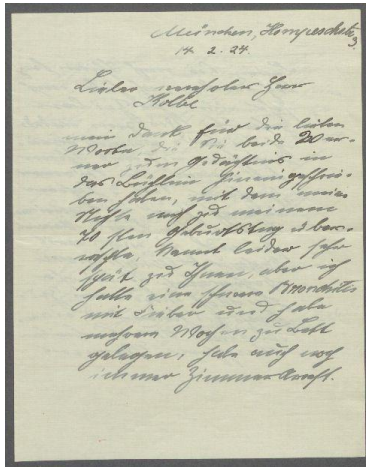 München, Hompeschstr. 3.
14. 2. 24.
Lieber verehrter Herr
Kolbe
mein Dank für die lieben
Worte die Sie beide
mir zum Gedächtnis in
das Büchlein hineingeschrie-
ben haben, mit dem meine
Nichte mich zu meinem
70 sten Geburtstag über-
raschte, kommt leider sehr
spät zu Ihnen, aber ich
hatte eine schwere Bronchitis
mit Fieber und habe
mehrere Wochen zu Bett
gelegen, habe auch noch
immer Zimmerarrest.